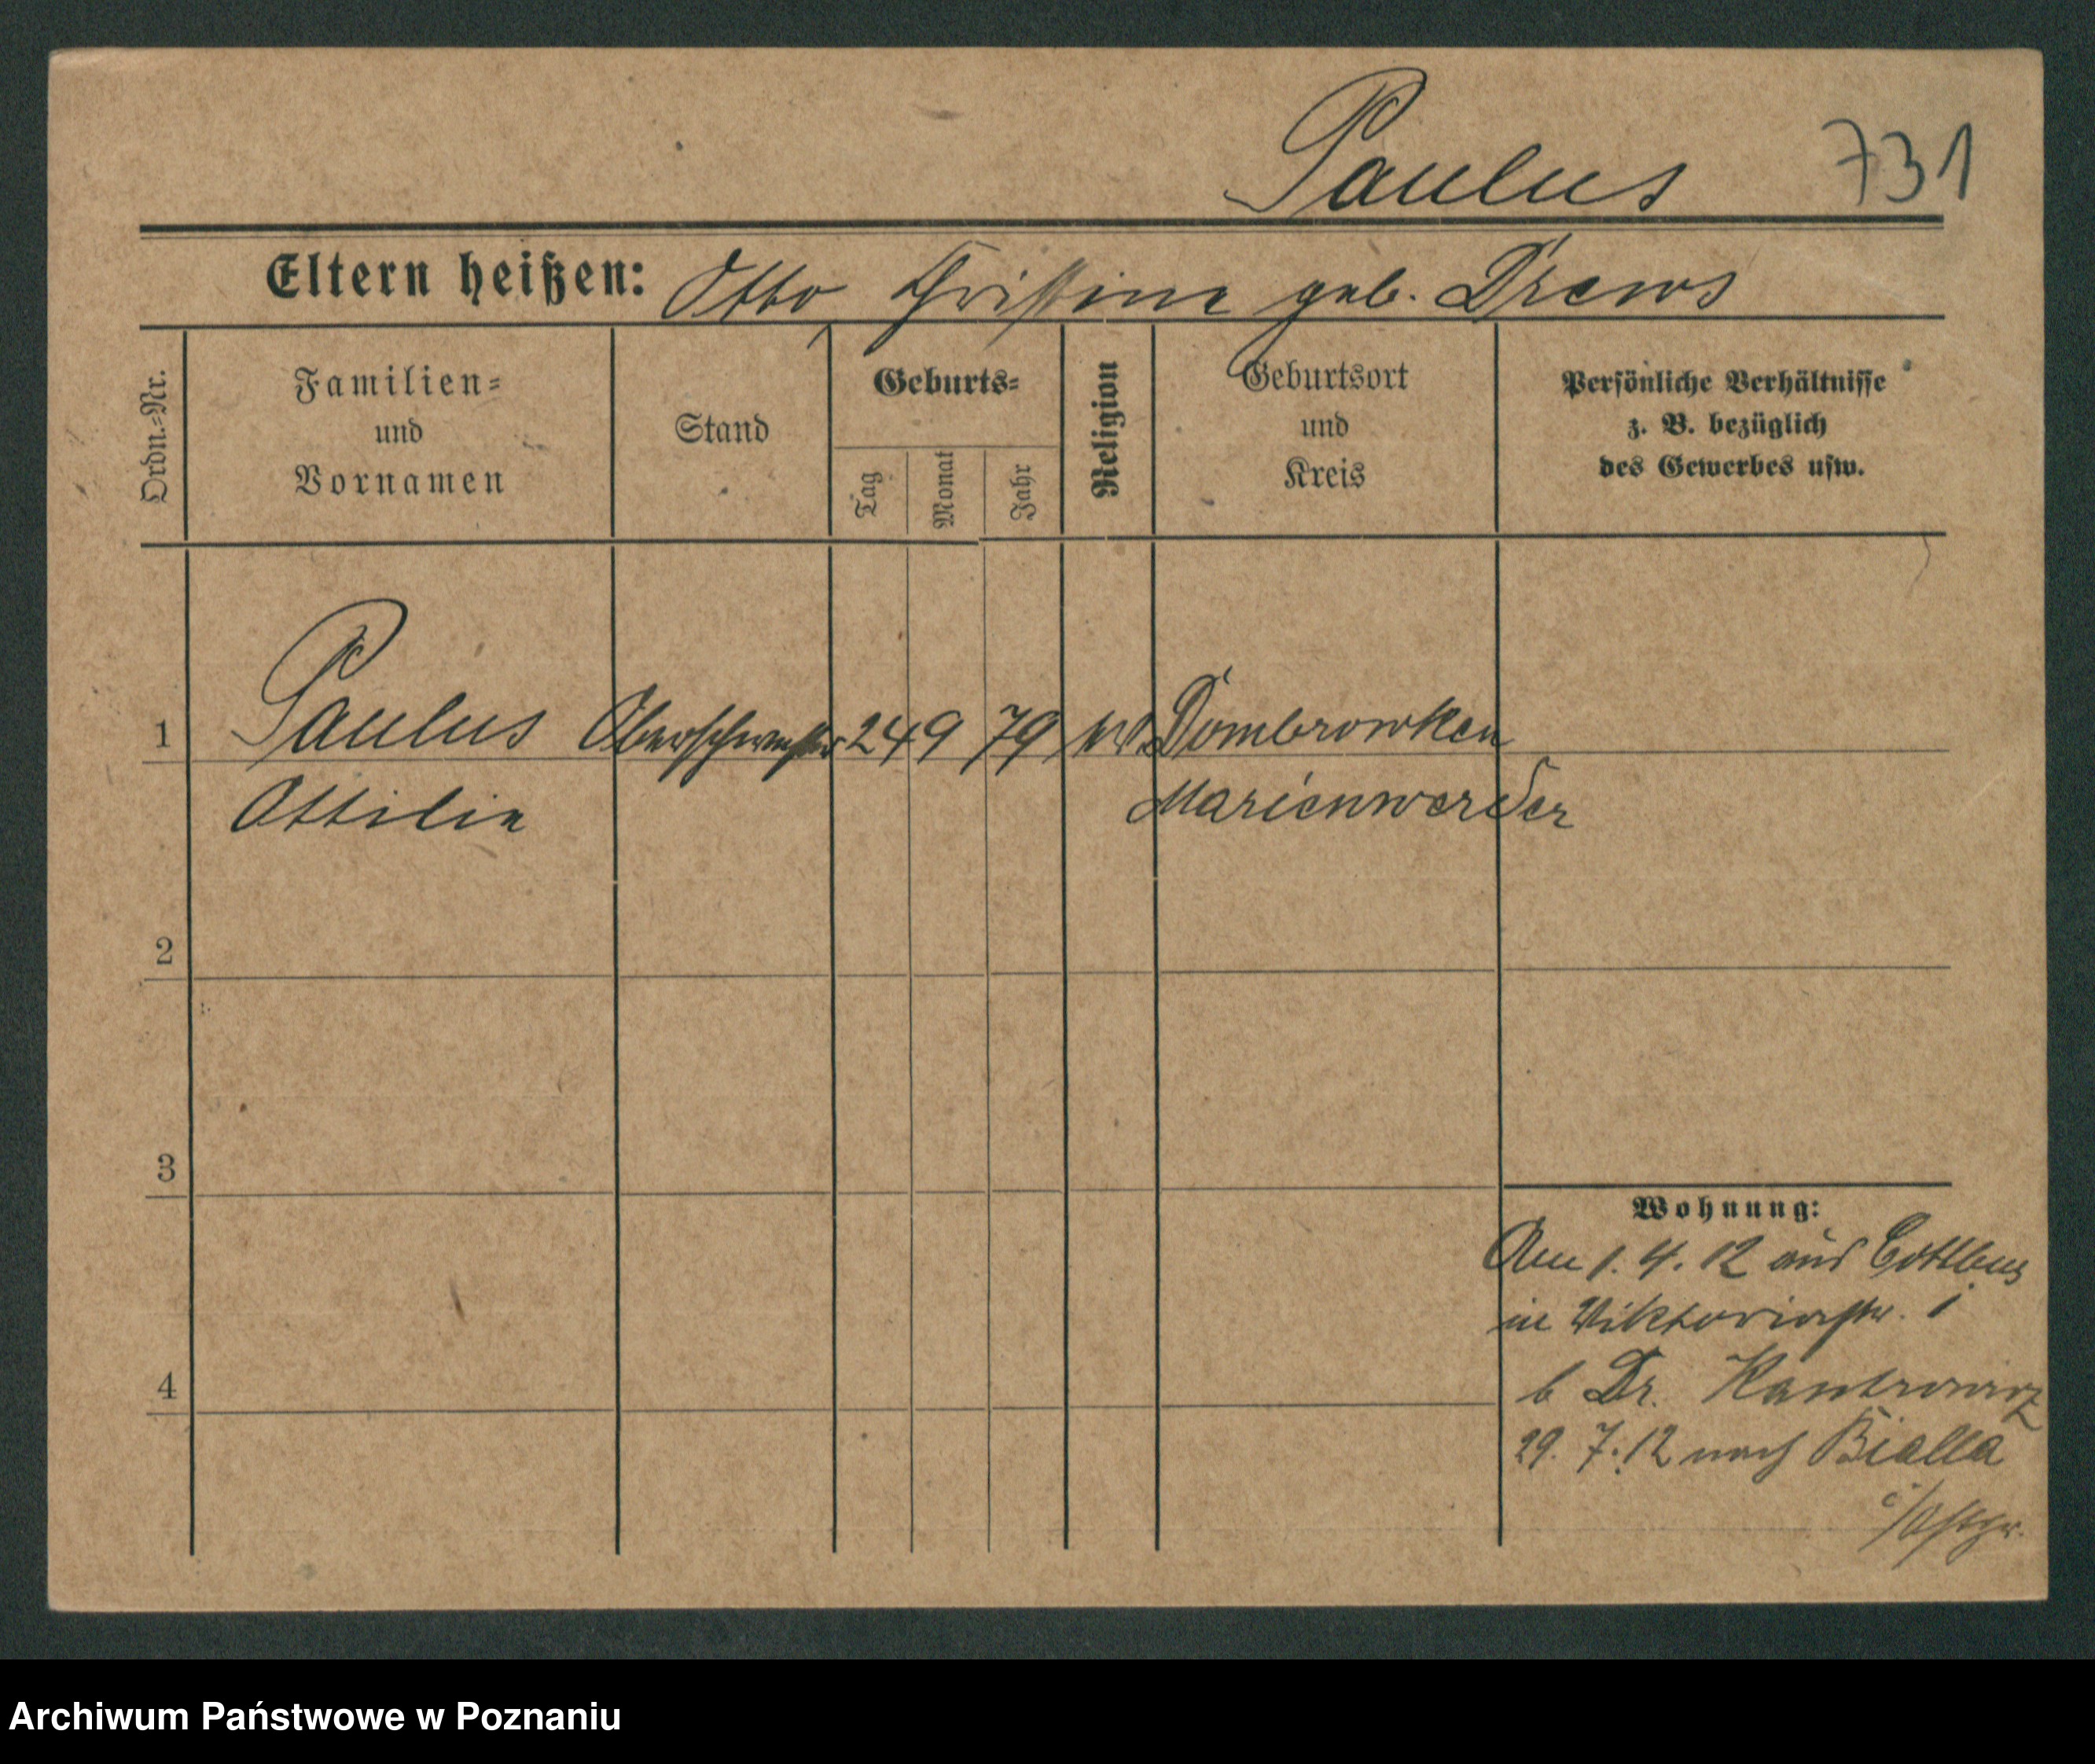 Paulus 731
Eltern heißen: Otto, Christine geb. Drews
Ordn.-Nr.
Familien-
und
Vornamen
Stand
Geburts-
Tag
Monat
Jahr
Religion
Geburtsort
und
Kreis
Persönliche Verhältnisse
z. B. bezüglich
des Gewerbes usw.
1 Paulus Oberschwester 24 9 79 Dombrowken
Ottilie Marienwerder
2
3
4
Wohnung:
Am 1. 4. 12 aus Cottbus
in Viktoriastr. 1
b Dr. Kantrowicz
29. 7. 12 nach Bialla
i/Ostpr.
Archiwum Państwowe w Poznaniu